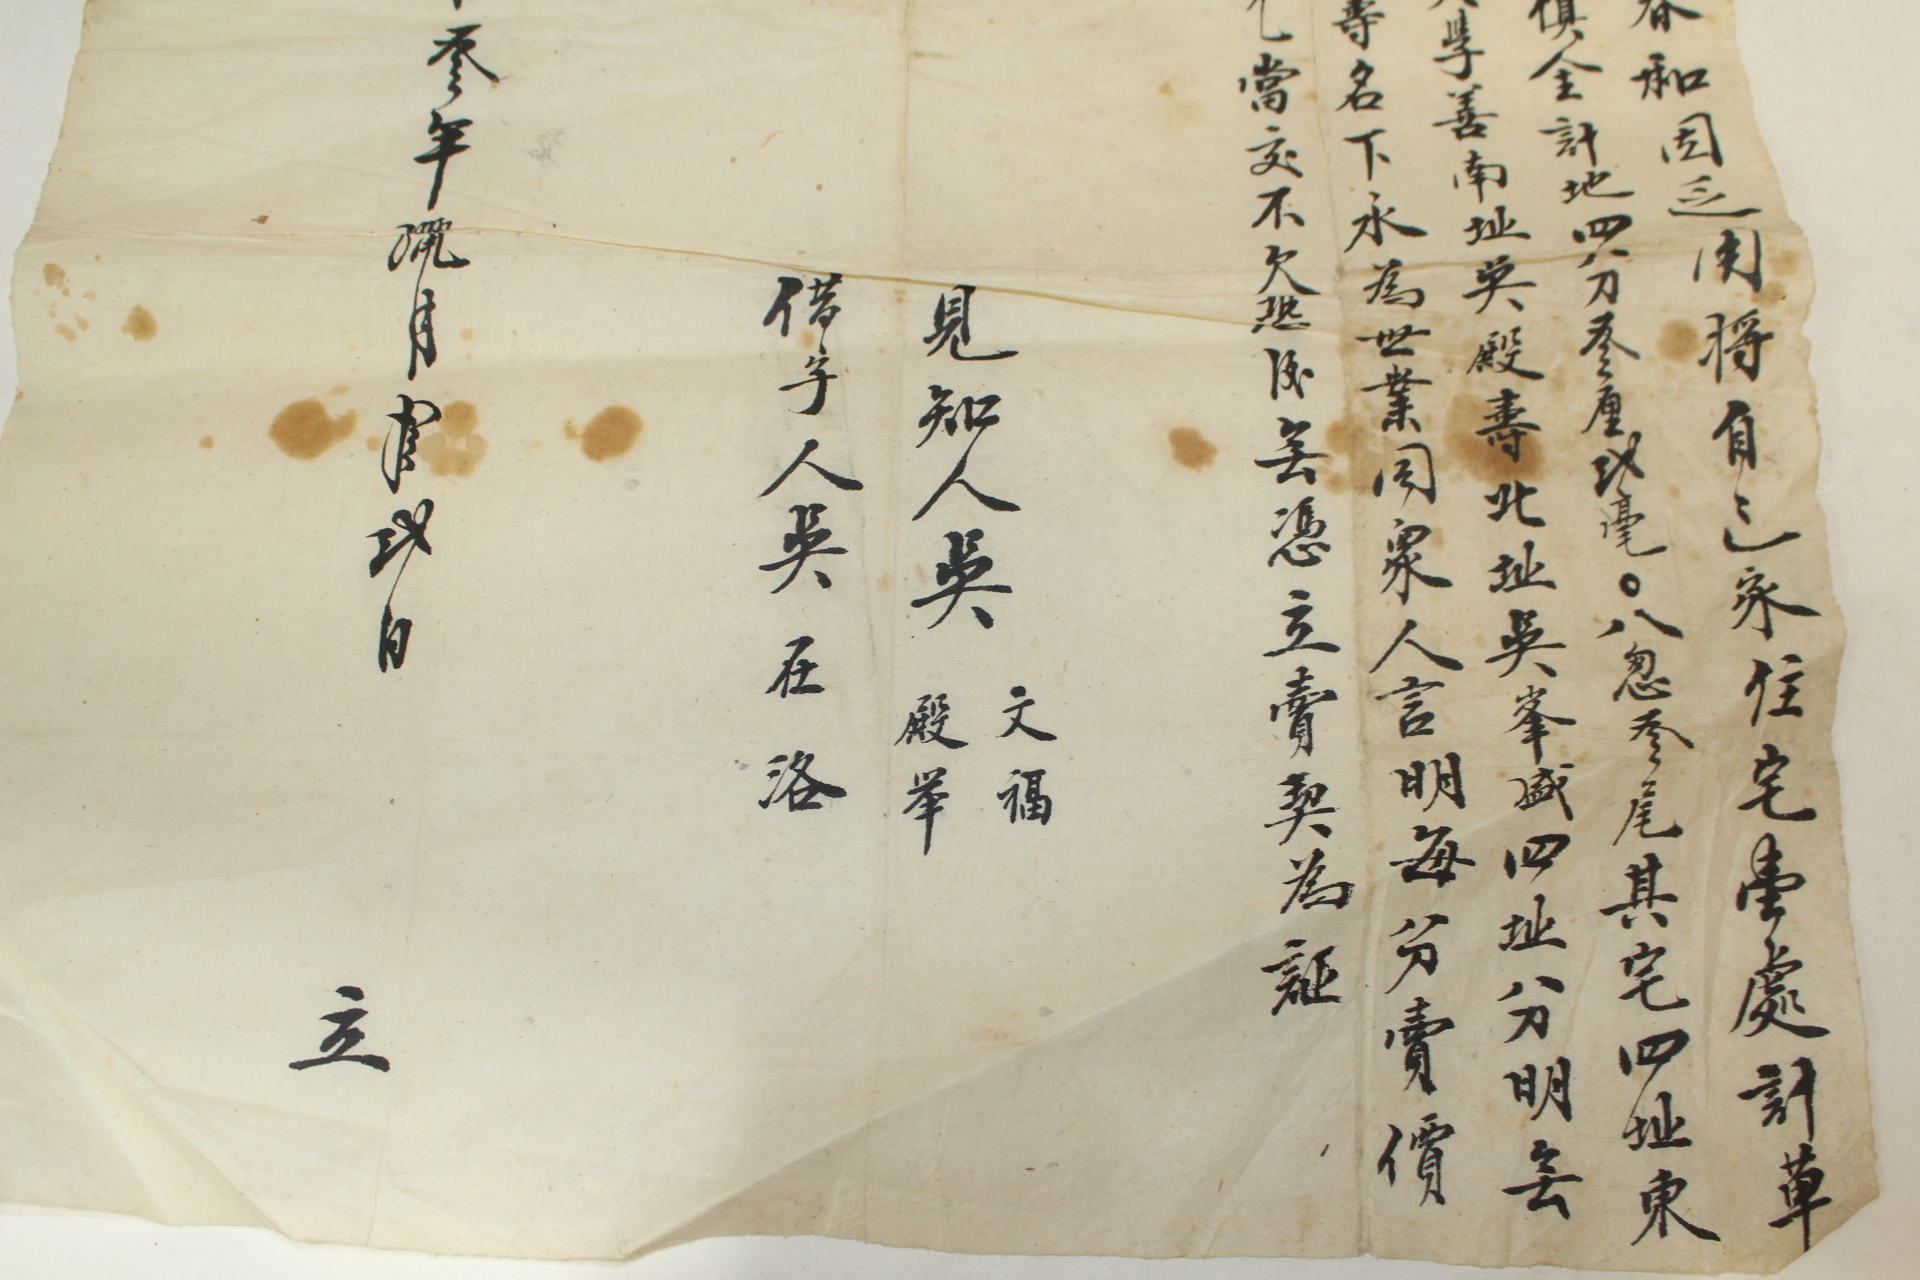 春和因乏用将自己家住宅壹處計草
俱全計地四分叁厘弍毫〇八忽叁尾其宅四址東
學善南址吳殿壽北址吳峯盛四址分明無
壽名下永為世業同衆人言明每分賣價
當交不欠恐後無憑立賣契為証
見知人吳 文福 殿举
借字人吳在洛
叁年臘月 弍日
立